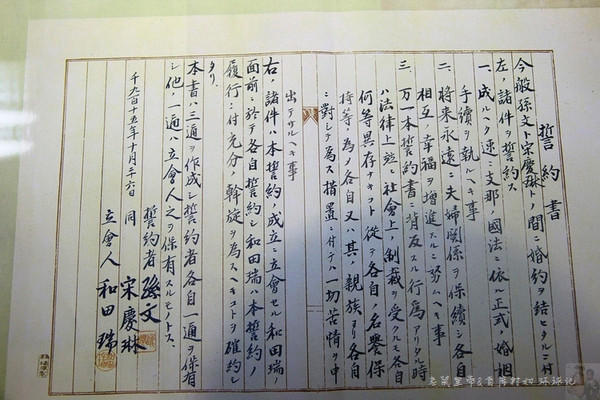 誓約書
今般孫文ト宋慶琳トノ間ニ婚約ヲ結ヒタルニ付
左ノ諸件ヲ誓約ス
一、成ルヘク速ニ支那ノ國法ニ依ル正式ノ婚姻
手續ヲ執ルヘキ事
二、將来永遠ニ夫婦関係ヲ保續シ各自
相互ノ幸福ヲ増進スルニ努ムヘキ事
三、万一本誓約書ニ背反スル行為アリタル時
ハ法律上竝ニ社會上ノ制裁ヲ受クルモ各自
何等異存ナキコト従テ各自ノ名譽保
持等ノ為メ各自又ハ其ノ親族ヨリ各自
ニ對シテ為ス措置ニ付テハ一切苦情ヲ申
出テサルヘキ事
右ノ諸件ハ本誓約ノ成立ニ立會セル和田瑞ノ
面前ニ於テ各自誓約シ和田瑞ハ本誓約ノ
履行ニ付充分ノ斡旋ヲ為スヘキコトヲ確約シ
タリ
本書ハ三通ヲ作成シ誓約者各自一通ヲ保有
シ他ノ一通ハ立會人之ヲ保有スルモノトス、
千九百十五年十月二十六日
誓約者 孫文
同 宋慶琳
立會人 和田瑞